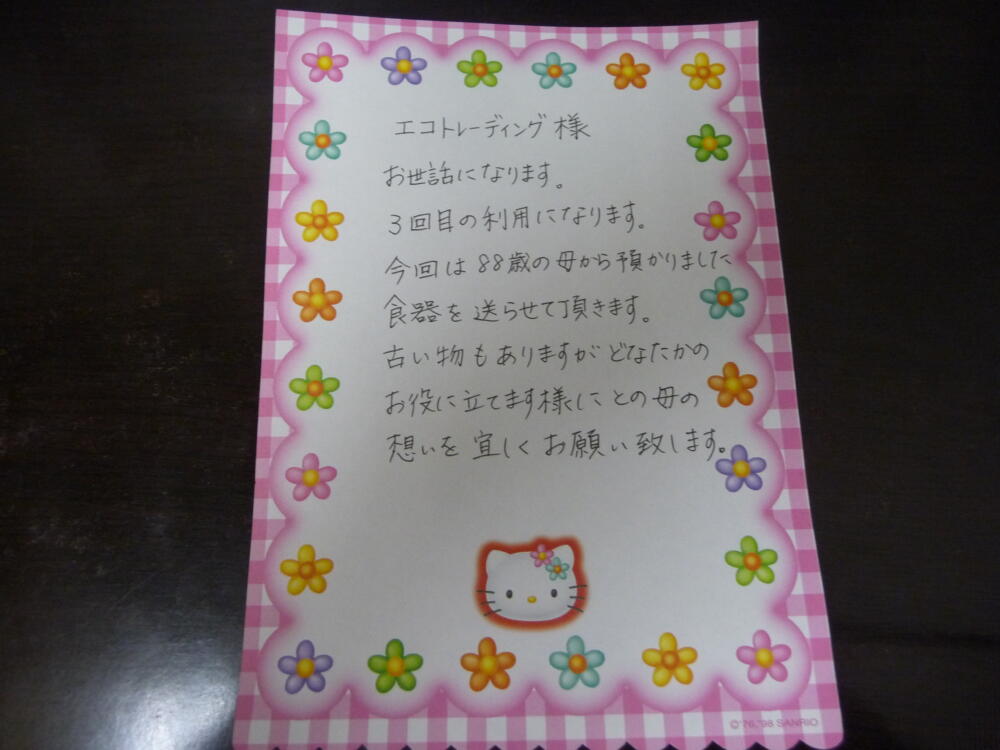 エコトレーディング様
お世話になります。
3回目の利用になります。
今回は88歳の母から預かりました
食器を送らせて頂きます。
古い物もありますがどなたかの
お役に立てます様にとの母の
想いを宜しくお願い致します。
©'76,'98 SANRIO